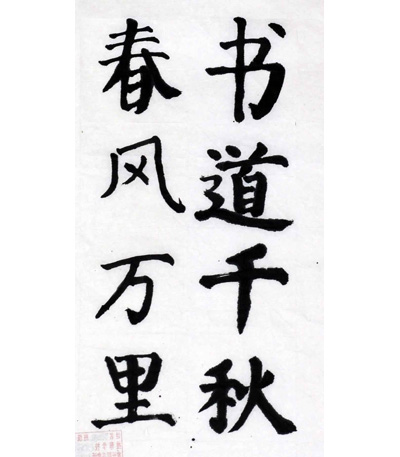 书道千秋
春风万里